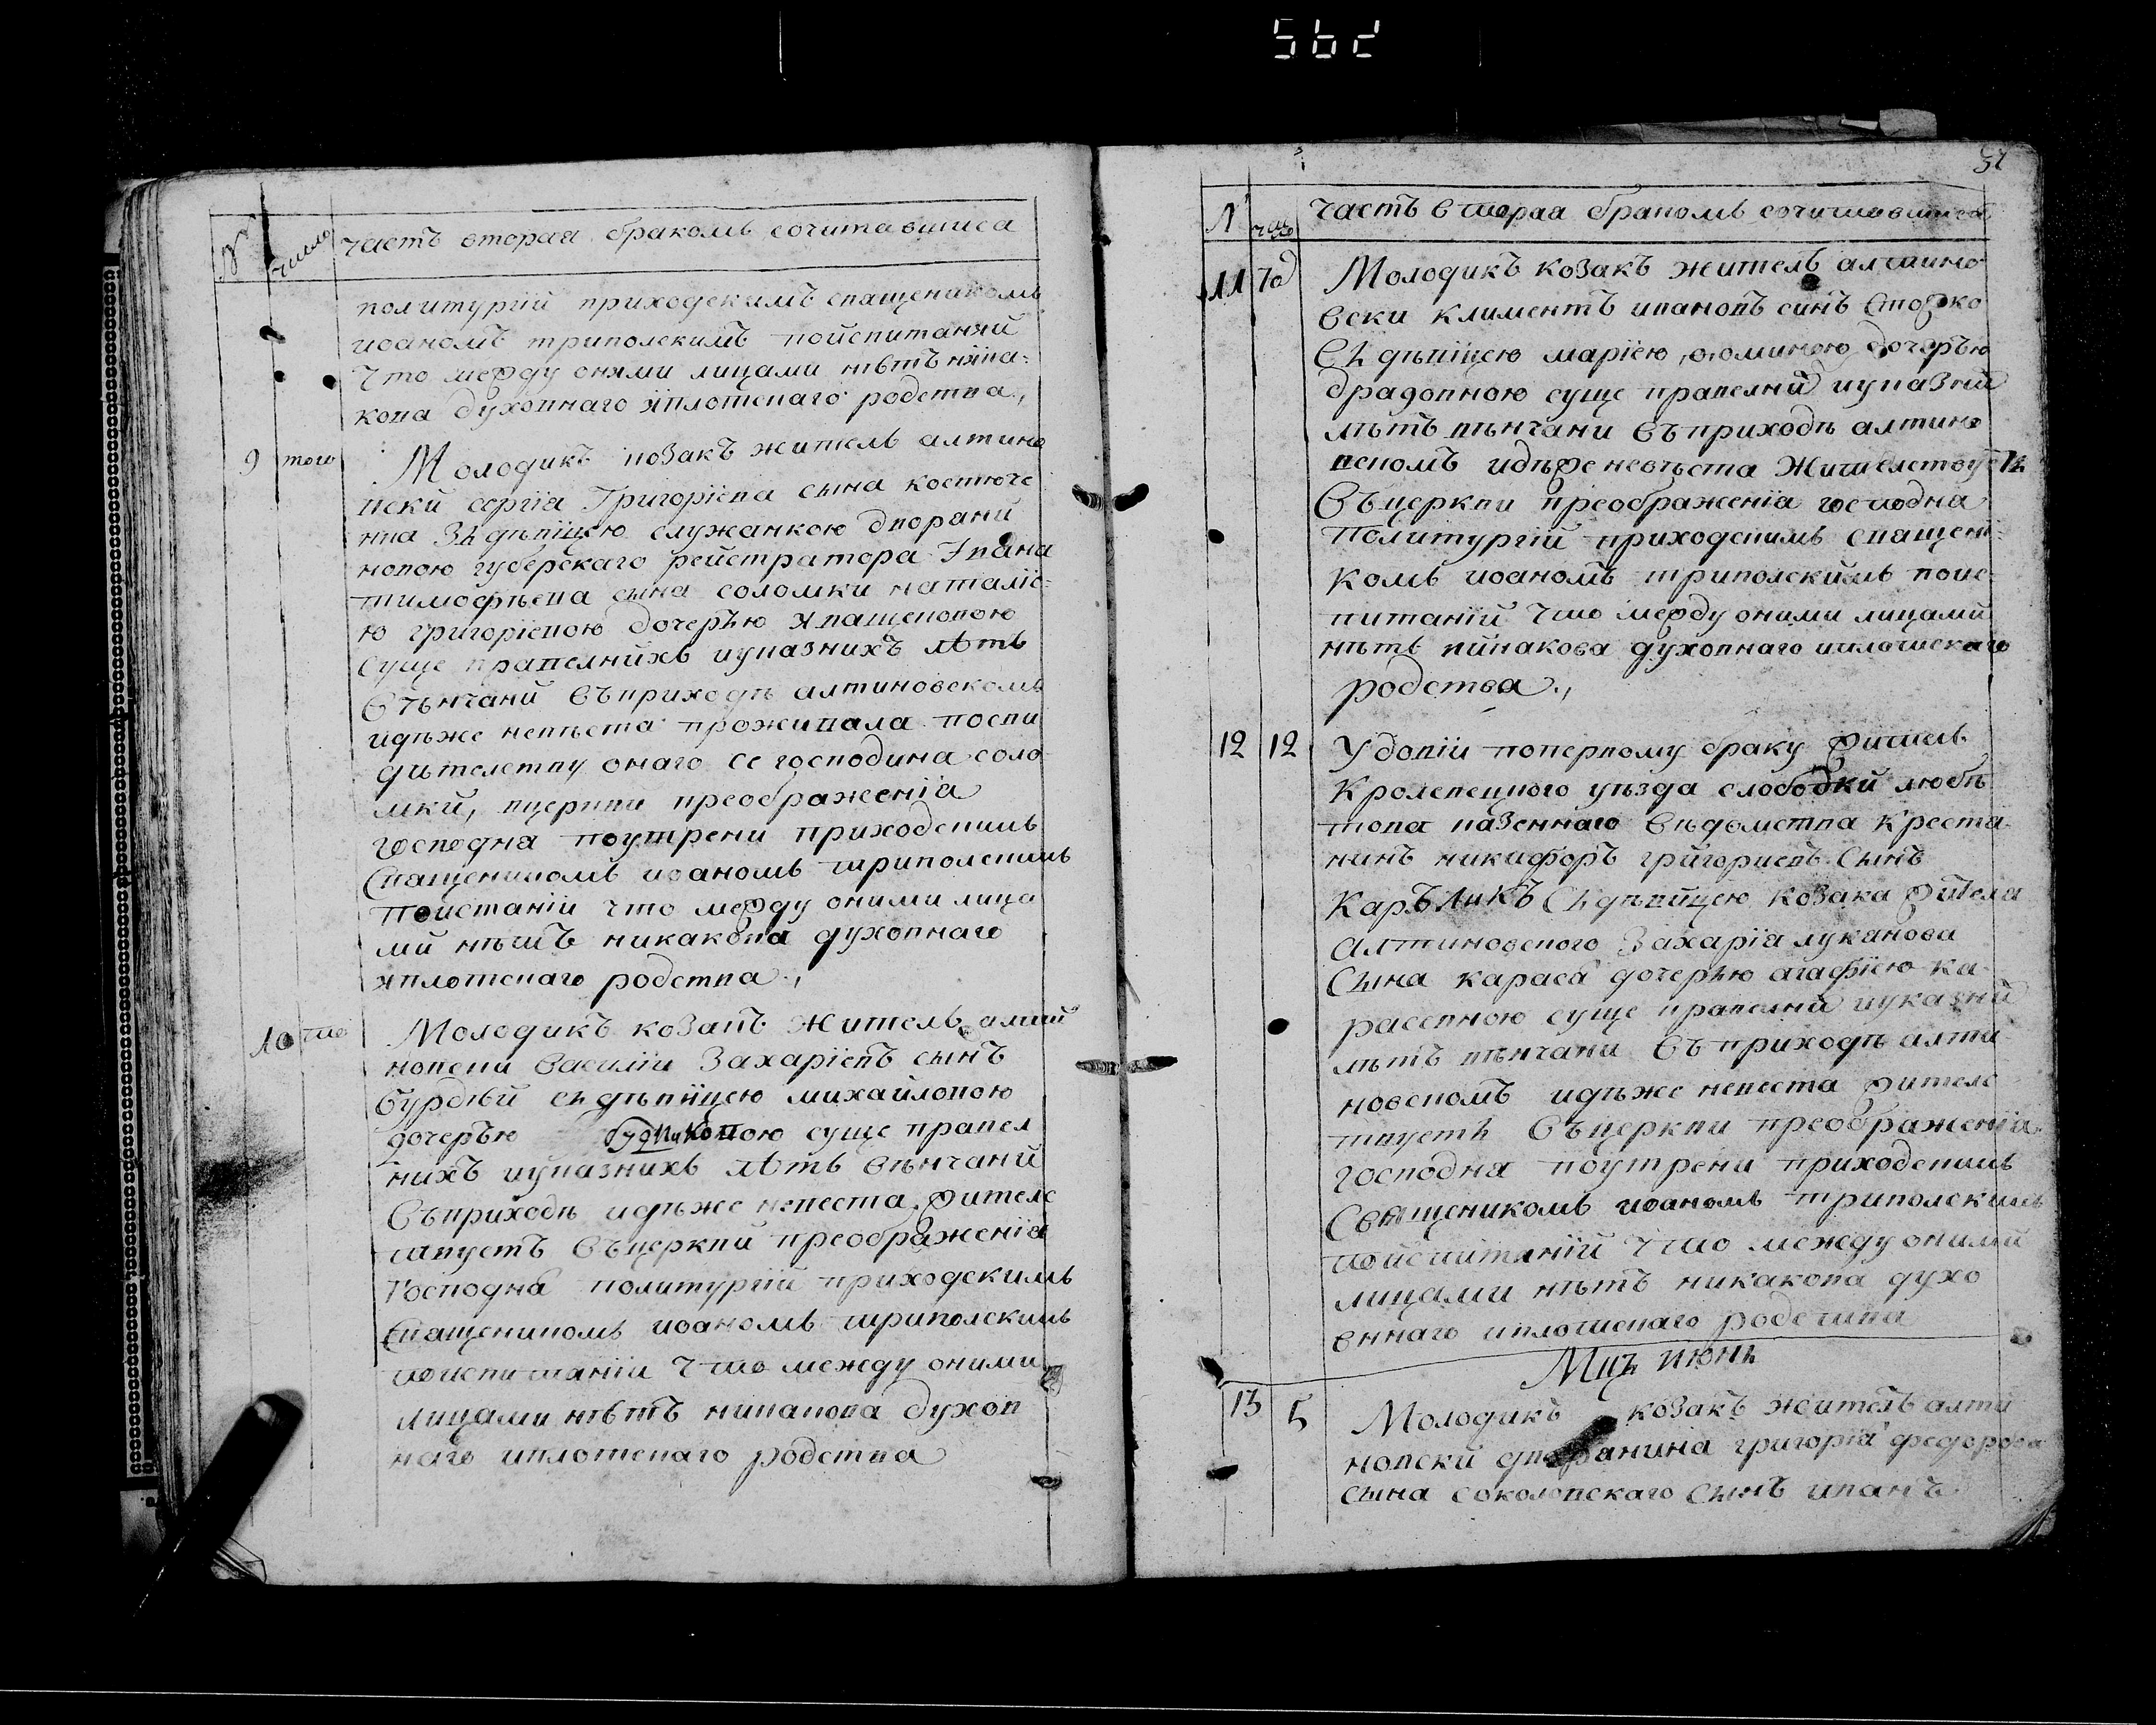 562
№ число частъ вторая бракомъ сочитавшиса
политургїй приходскимъ сващеникомъ
иоаномъ триполскимъ поиспитанїй
что между оними лицами нѣтъ ника:
кова духовнаго иплотскаго родства,
9 того Молодикъ козакъ жителъ алтино
вски сергїа Григорїева сына костюче
нка зъ дѣвїцею служанкою дворани
новою губерскаго рейстратора Ивана
тимофѣева сына соломки наталїе:
ю григорїевою дочерѣю иващеновою
суще правелнихъ иуказнихъ лѣтъ
вѣнчани въприходѣ алтиновскомъ
идѣже невѣста проживала посви
дителству онаго ее господина соло
мки, вцеркви преображенїа
господна поутрени приходскимъ
Сващеникомъ иоаномъ триполскимъ
поистанїи что между оними лица
ми нѣтъ никакова духовнаго
иплотскаго родства,
10 того Молодикъ козакъ жителъ алти
новски василїи Захарїевъ сынъ
бурдѣй съ дѣвицею михайловою
дочерѣю будниковою суще правел
нихъ иуказнихъ лѣтъ вѣнчани
въприходѣ идѣже невеста жителс
твуетъ въцеркви преображенїа
Господна политургїи приходскимъ
Сващеникомъ иоаномъ триполскимъ
поиспитанїи что между оними
лицами нѣтъ никакова духов
наго иплотскаго родства
N число частъ вторая бракомъ сочитавшиса
11 Молодикъ козакъ жителъ алтино
вски климентъ ивановъ синъ
съ дѣвїцею марїею, фоминою дочерѣю
суще правелни иуказни
лѣтъ вѣнчани въприходѣ алтино
вскомъ идѣже невѣста жителствуетъ
въцеркви преображенїа господна
политургїй приходскимъ сващени:
комъ иоаномъ триполскимъ поис
питанїй что между оними лицами
нѣтъ никакова духовнаго иплотскаго
родства,
12 12 Удовїи поперпому браку жителъ
кролевецкого уѣзда слободки любѣ
това казеннаго вѣдомства креста
нинъ никифоръ григориевъ сынъ
Карѣликъ съ дѣвицею козака жителя
алтиновского Захарїа луканова
Сына караса дочерѣю агафїею ка
расевною суще правелни иуказни
лѣтъ вѣнчани въприходѣ алти
новскомъ идѣже невеста жителс
твуетъ въцеркви преображенїа
господна поутрени приходскимъ
Священиком иоаномъ триполскимъ
поиспитанїй что между оними
лицами нѣтъ никакова духо
внаго иплотскаго родства
Мцъ июнь
13 5 Молодикъ козакъ жителъ алти
новски дворанина григорїа федорова
сына соколовскаго сынъ иванъ